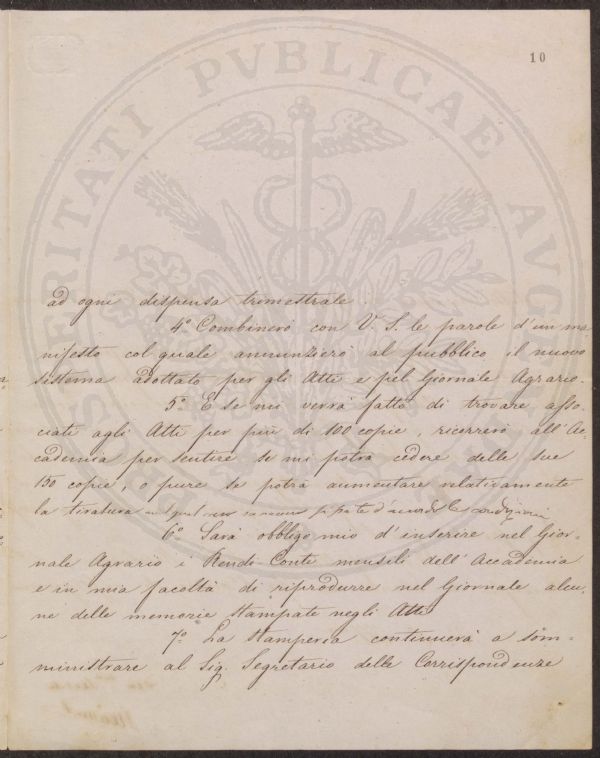 10
PROSPERITATI PVBLICAE AVGENDAE
ad ogni dispensa trimestrale.
4º Combinerò con V. S. le parole d'un ma
nifesto col quale annunzierò al pubblico il nuovo
sistema adottato per gli Atti e pel Giornale Agrario.
5º E se mi verrà fatto di trovare asso
ciati agli Atti per più di 100 copie, ricorrerò all'Ac
cademia per sentire se mi potrà cedere delle sue
130 copie, o pure se potrà aumentare relativamente
la tiratura d'accordo le condizioni
6º Sarà obbligo mio d'inserire nel Gior=
nale Agrario i Rendi-Conti mensili dell'Accademia
e in mia facoltà di riprodurre nel Giornale alcu=
ne delle memorie stampate negli Atti
7º La Stamperia continuerà a som=
ministrare al Sig. Segretario delle Corrispondenze